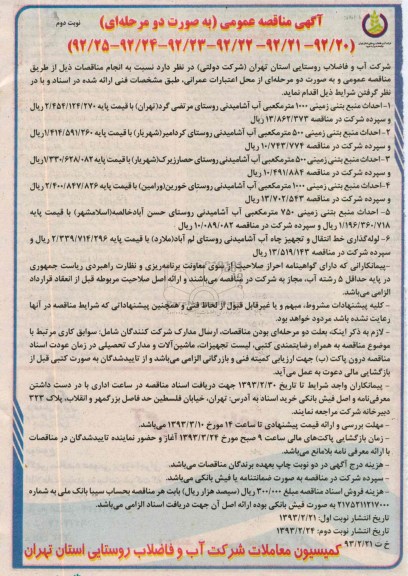 آگهی مناقصه عمومی (به صورت دو مرحله‌ای)
نوبت دوم
(۹۲/۲۰-۹۲/۲۱-۹۲/۲۲-۹۲/۲۳-۹۲/۲۴-۹۲/۲۵)
شرکت آب و فاضلاب روستایی استان تهران (شرکت دولتی) در نظر دارد نسبت به انجام مناقصات ذیل از طریق
مناقصه عمومی و به صورت دو مرحله‌ای از محل اعتبارات عمرانی، طبق مشخصات فنی ارائه شده در اسناد و با در
نظر گرفتن شرایط ذیل اقدام نماید.
۱-احداث منبع بتنی زمینی ۱۰۰۰ مترمکعبی آب آشامیدنی روستای مرتضی گرد(تهران) با قیمت پایه ۲/۴۵۴/۱۲۴/۲۷۰ ریال
و سپرده شرکت در مناقصه ۱۳/۸۶۲/۳۷۳ ریال
۲-احداث منبع بتنی زمینی ۵۰۰ مترمکعبی آب آشامیدنی روستای کردامیر(شهریار) با قیمت پایه ۱/۴۱۴/۵۹۱/۲۶۰ ریال
و سپرده شرکت در مناقصه ۱۰/۷۴۳/۷۷۴ ریال
۳-احداث منبع بتنی زمینی ۵۰۰ مترمکعبی آب آشامیدنی روستای حصارزیرک(شهریار) با قیمت پایه ۱/۳۳۰/۶۲۸/۰۸۲ ریال
و سپرده شرکت در مناقصه ۱۰/۴۹۱/۸۸۴ ریال
۴-احداث منبع بتنی زمینی ۱۰۰۰ مترمکعبی آب آشامیدنی روستای خورین(ورامین) با قیمت پایه ۲/۴۰۰/۸۴۷/۸۲۶ ریال
و سپرده شرکت در مناقصه ۱۳/۷۰۲/۵۴۳ ریال
۵- احداث منبع بتنی زمینی ۷۵۰ مترمکعبی آب آشامیدنی روستای حسن آبادخالصه(اسلامشهر) با قیمت پایه
۱/۱۹۶/۳۶۰/۷۱۸ ریال و سپرده شرکت در مناقصه ۱۰/۰۸۹/۰۸۲ ریال
۶- لوله‌گذاری خط انتقال و تجهیز چاه آب آشامیدنی روستای لم آباد(ملارد) با قیمت پایه ۲/۳۳۹/۷۱۴/۲۹۶ ریال و
سپرده شرکت در مناقصه ۱۳/۵۱۹/۱۴۳ ریال
-پیمانکارانی که دارای گواهینامه احراز صلاحیت از سوی معاونت برنامه‌ریزی و نظارت راهبردی ریاست جمهوری
در پایه حداقل ۵ رشته آب، مجاز به شرکت در مناقصه می‌باشند و ارائه اصل صلاحیت مربوطه قبل از انعقاد قرارداد
الزامی می‌باشد.
- کلیه پیشنهادات مشروط، مبهم و یا غیرقابل قبول از لحاظ فنی و همچنین پیشنهاداتی که شرایط مناقصه در آنها
رعایت نشده باشد مردود خواهد بود.
- لازم به ذکر اینکه بعلت دو مرحله‌ای بودن مناقصات، ارسال مدارک شرکت کنندگان شامل: سوابق کاری مرتبط با
موضوع مناقصه به همراه رضایتمندی کتبی، لیست تجهیزات، ماشین‌آلات و مدارک تحصیلی در زمان عودت اسناد
مناقصه درون پاکت (ب) جهت ارزیابی کمیته فنی و بازرگانی الزامی می‌باشد و از تاییدشدگان به صورت کتبی قبل از
بازگشایی مالی دعوت به عمل می‌آید.
- پیمانکاران واجد شرایط تا تاریخ ۱۳۹۳/۲/۳۰ جهت دریافت اسناد مناقصه در ساعت اداری با در دست داشتن
معرفی‌نامه و اصل فیش بانکی خرید اسناد به آدرس: تهران، خیابان فلسطین حد فاصل بزرگمهر و انقلاب، پلاک ۳۲۳
دبیرخانه شرکت مراجعه نمایند.
- مهلت بررسی و ارائه قیمت پیشنهادی تا ساعت ۱۴ مورخ ۱۳۹۳/۳/۱۰ می‌باشد.
- زمان بازگشایی پاکت‌های مالی ساعت ۹ صبح مورخ ۱۳۹۳/۳/۲۴ آغاز و حضور نماینده تاییدشدگان در مناقصات
با ارائه معرفی نامه بلامانع می‌باشد.
- هزینه درج آگهی در دو نوبت چاپ بعهده برندگان مناقصات می‌باشد.
- سپرده شرکت در مناقصه به صورت ضمانتنامه یا فیش بانکی می‌باشد.
- هزینه فروش اسناد مناقصه مبلغ ۳۰۰/۰۰۰ ریال (سیصد هزار ریال) بابت هر مناقصه بحساب سیبا بانک ملی به شماره
۲۱۷۵۲۱۱۲۱۷۰۰۰ به صورت فیش بانکی بوده ارائه اصل آن جهت دریافت اسناد الزامی می‌باشد.
تاریخ انتشار نوبت اول: ۱۳۹۳/۲/۲۱
تاریخ انتشار نوبت دوم: ۱۳۹۳/۲/۲۴
خ ت ۹۳/۲/۲۱
کمیسیون معاملات شرکت آب و فاضلاب روستایی استان تهران